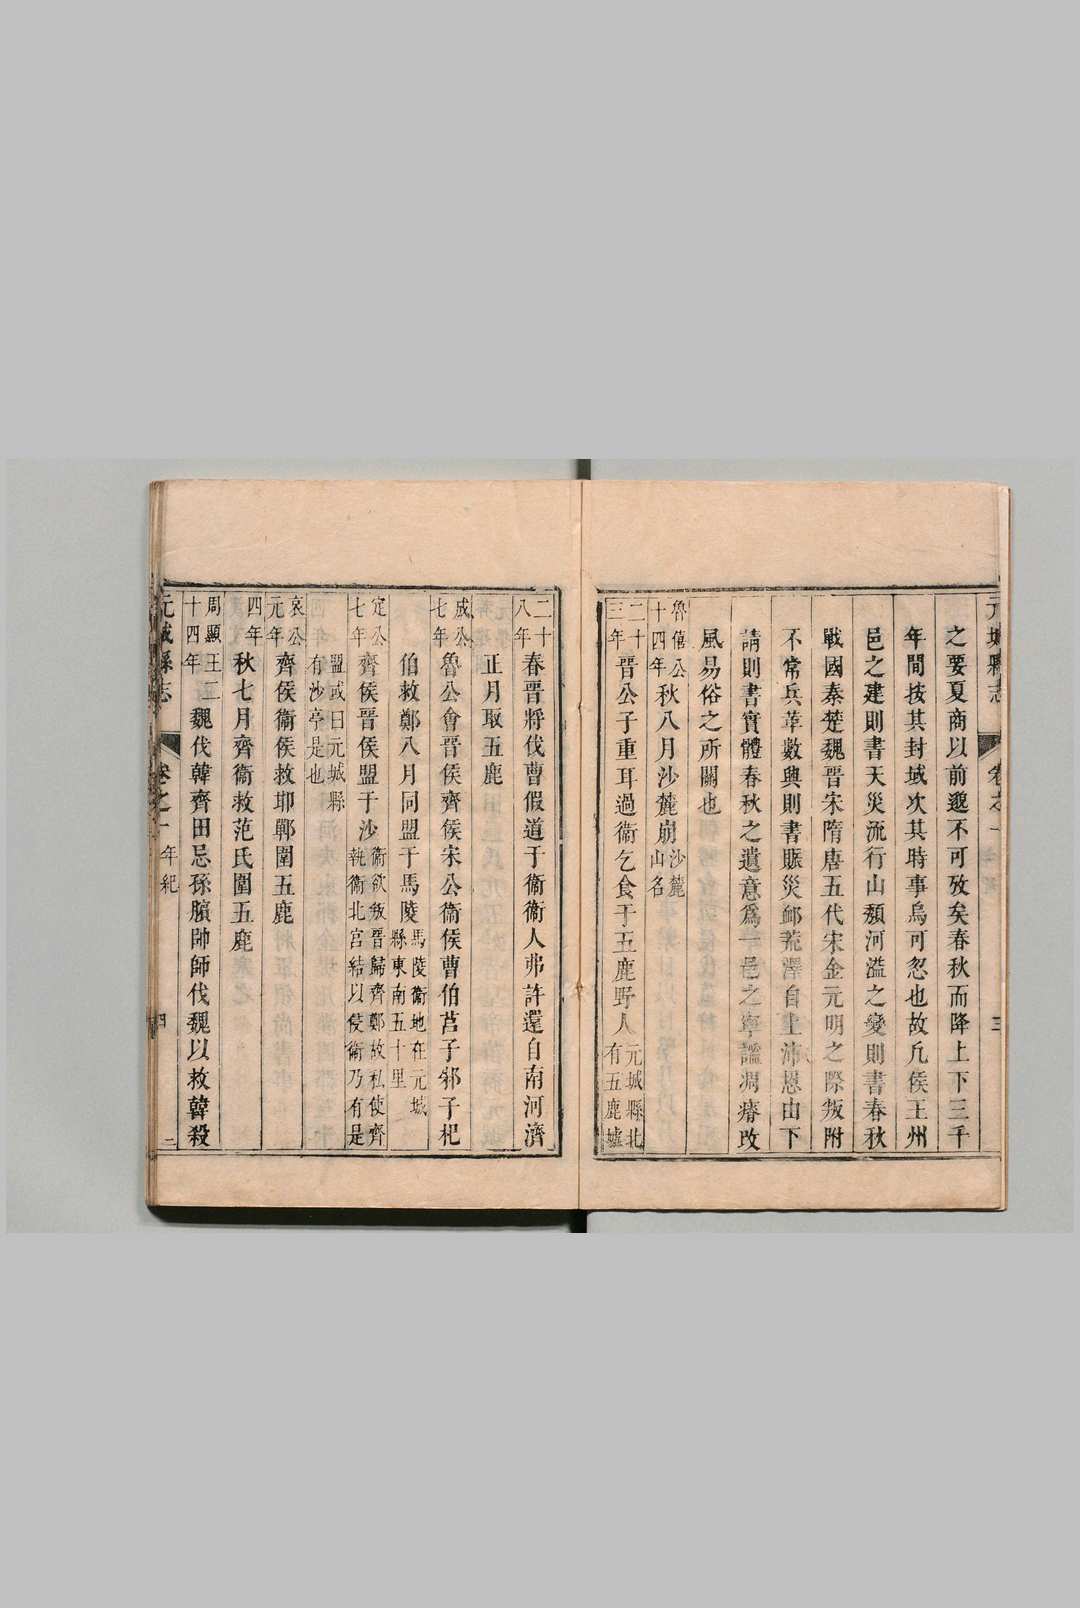 元城縣志 卷之一 三
之要夏商以前邈不可攷矣春秋而降上下三千
年間按其封域次其時事烏可忽也故凢侯王州
邑之建則書天災流行山頽河溢之變則書春秋
戰國秦楚魏晉宋隋唐五代宋金元明之際叛附
不常兵革數興則書賑災䘏荒澤自上沛恩由下
請則書實體春秋之遺意爲一邑之寧謐凋瘠攺
風易俗之所關也
魯僖公十四年秋八月沙麓崩沙麓山名
二十三年晉公子重耳過衞乞食于五鹿野人元城縣北有五鹿墟
二十八年春晉將伐曹假道于衞衞人弗許還自南河濟
正月取五鹿
成公七年魯公會晉侯齊侯宋公衞侯曹伯莒子邾子杞
伯救鄭八月同盟于馬陵馬陵衞地在元城縣東南五十里
定公七年齊侯晉侯盟于沙衞欲叛晉歸齊鄭故私使齊執衞北宮結以侵衞乃有是
盟或曰元城縣有沙亭是也
哀公元年齊侯衞侯救邯鄲圍五鹿
四年秋七月齊衞救范氏圍五鹿
周顯王二十四年魏伐韓齊田忌孫臏帥師伐魏以救韓殺
元城縣志 卷之一 年紀 四 二